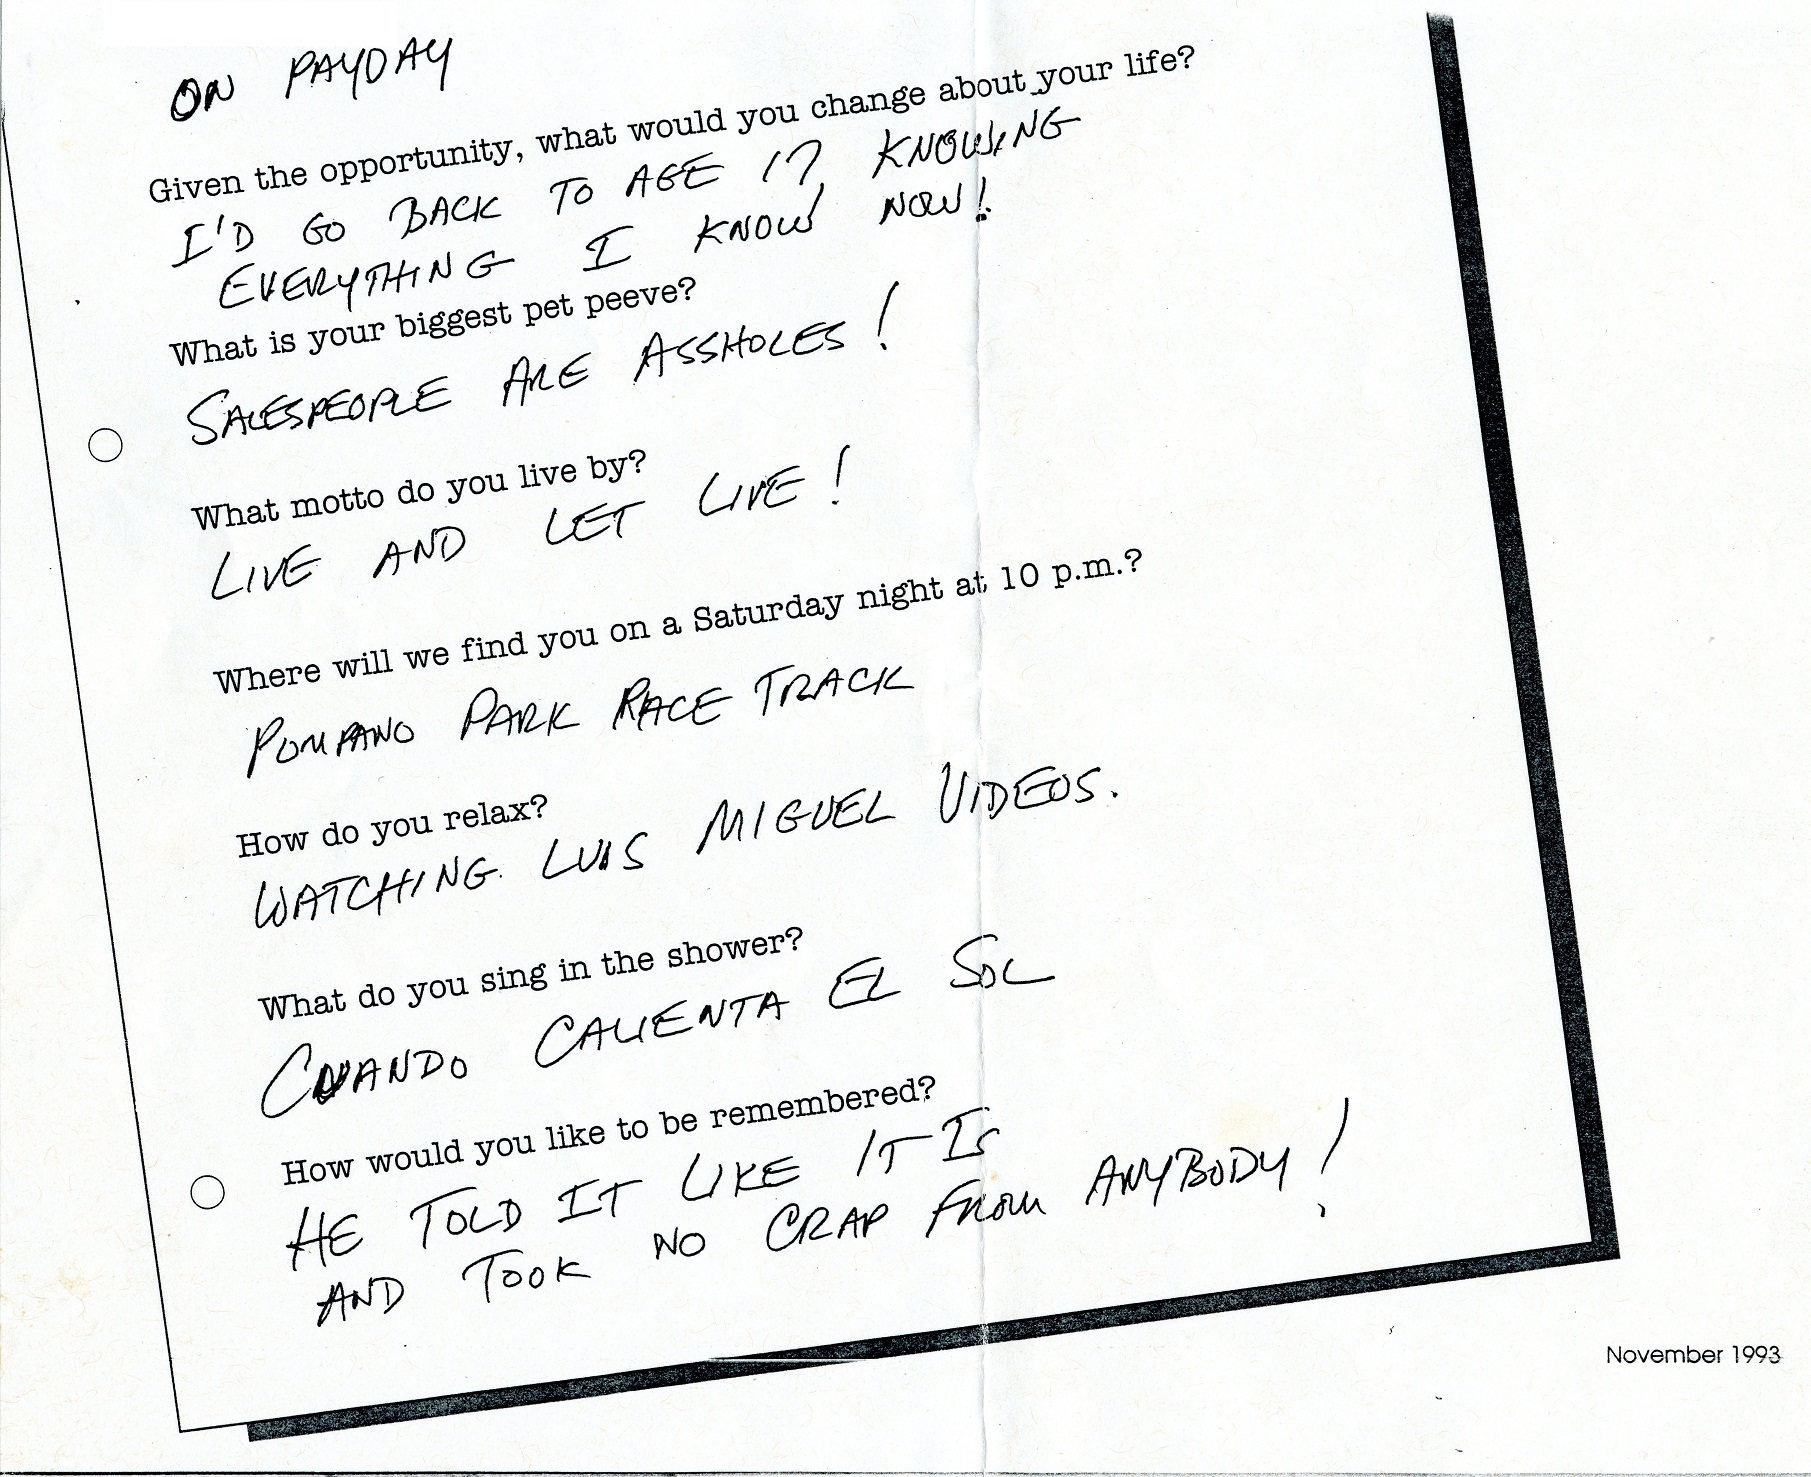 ON PAYDAY
Given the opportunity, what would you change about your life?
I'D GO BACK TO AGE 17 KNOWING
EVERYTHING I KNOW NOW!
What is your biggest pet peeve?
SALESPEOPLE ARE ASSHOLES!
What motto do you live by?
LIVE AND LET LIVE!
Where will we find you on a Saturday night at 10 p.m.?
POMPANO PARK RACE TRACK
How do you relax?
WATCHING LUIS MIGUEL VIDEOS.
What do you sing in the shower?
CUANDO CALIENTA EL SOL
How would you like to be remembered?
HE TOLD IT LIKE IT IS
AND TOOK NO CRAP FROM ANYBODY!
November 1993